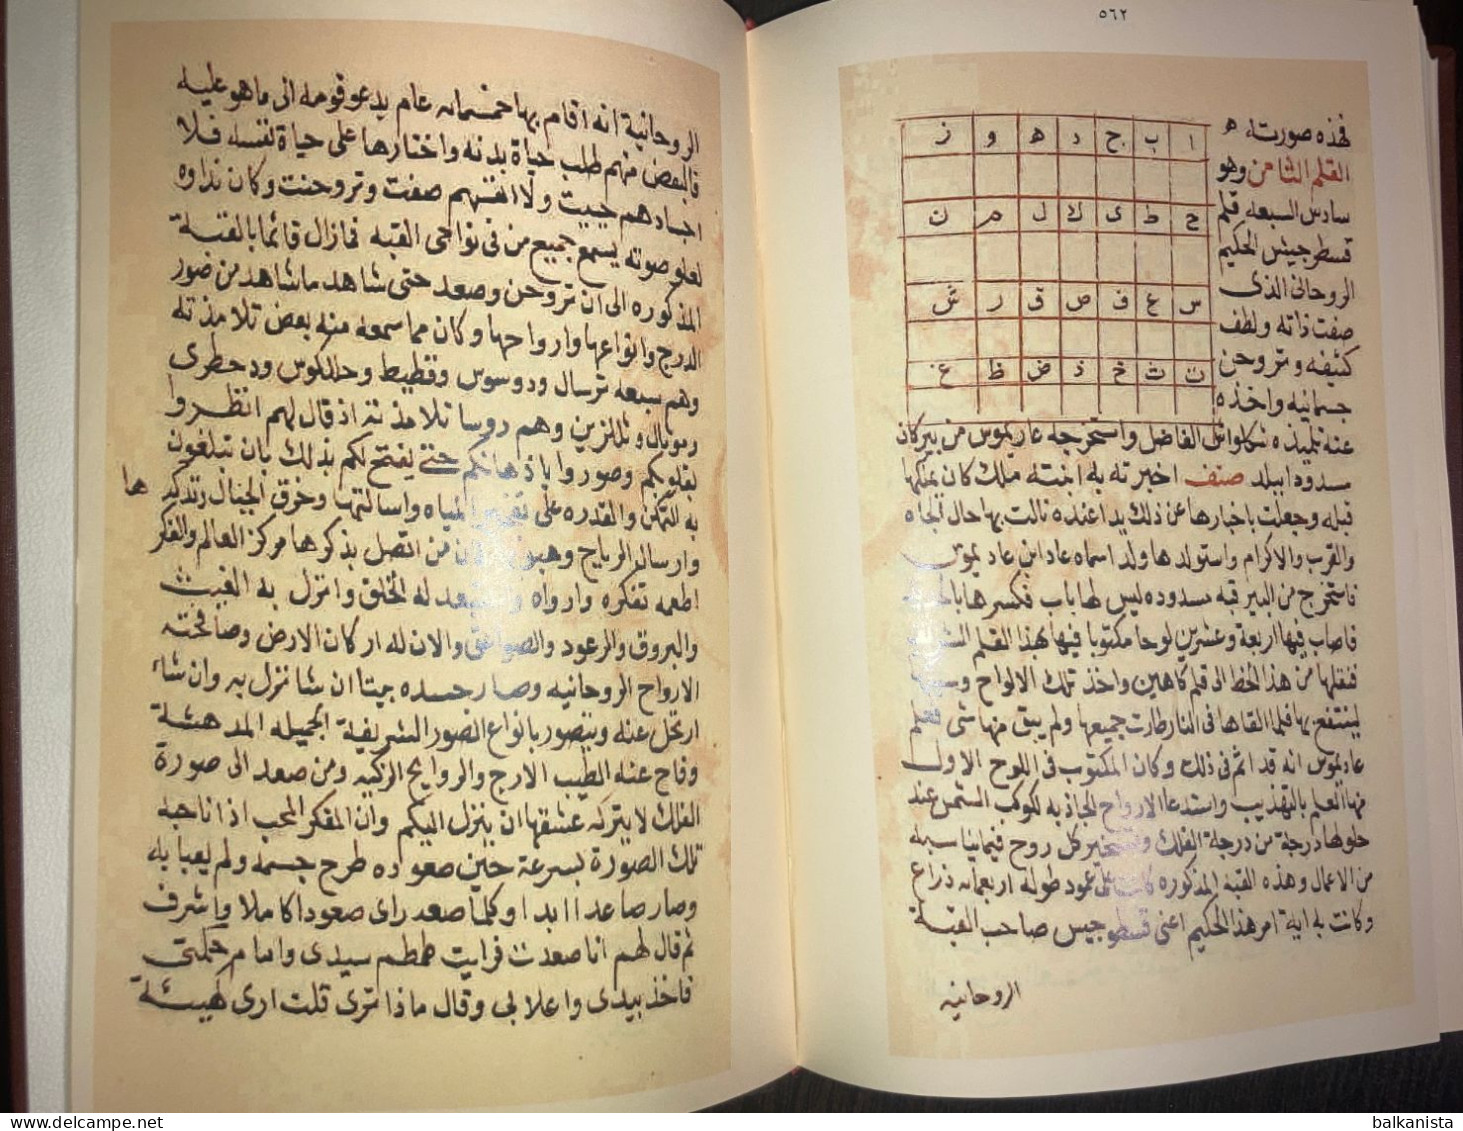 ٥٦٢
فهذه صورتاه ه
القلم الثامن وهو
سادس السبعه قلم
قسطرجيس الحكيم
الروحانى الذى
صفت ذاته ولطف
كثيفه وتروحن
جسمانيه واخذه
ا ب ج د ه و ز
ح ط ى ك ل م ن
س ع ف ص ق ر ش
ت ث خ ذ ض ظ غ
عنه تلميذه شكلواش الفاضل واستخرجه عاديموس من بير كان
سدودا ببلد صنف اخبرته به ابنته ملك كان يملكها
قبله وجعلت باخبارها عن ذلك يدا عنده نالت بها حال الجاه
والقرب والاكرام واستولدها ولد اسماه عاد ابن عاديموس
فاستخرج من البير قبه مسدوده ليس لها باب فكسرها
فاصاب فيها اربعة وعشرين لوحا مكتوبا فيها بهذا القلم
فنقلها من هذا الخط الى قلم كاهين واخذ تلك الالواح
لينتفع بها فلما القاها فى النار طارت جميعها ولم يبق منها شى فعلم
عاديموس انه قد اثم فى ذلك وكان المكتوب فى اللوح الاول
منها العلم بالتهذيب واستدعا الارواح الجاذبه لكوكب الشمس عند
حلولها درجة من درجة الفلك وتسخير كل روح فيما يناسبه
من الاعمال وهذه القبه المذكوره كانت على عمود طوله اربعمايه ذراع
وكانت بداية امر هذا الحكيم اعنى قسطوجيس صاحب القبة
الروحانيه
الروحانية انه اقام بها خمسمايه عام يدعو قومه الى ما هو عليه
فالبعض منهم طلب حياة بدنه واختارها على حياة نفسه فلا
اجسادهم حييت ولا انفسهم صفت وتروحنت وكان نداوه
لعلو صوته يسمع جميع من فى نواحى القبه فمازال قائما بالقبة
المذكوره الى ان تروحن وصعد حتى شاهد ما شاهد من صور
الدرج وانواعها وارواحها وكان مما سمعه منه بعض تلامذته
وهم سبعه ترسال ودوسوس وقطيط وحلدكوس ودحطرى
ورمويال وثلمزين وهم روسا تلامذته اذ قال لهم انظروا
بقلوبكم وصوروا باذهانكم حتى يفتح لكم بذلك بان تبلغون
به التمكن والقدره على تفجير المياه واسالتها وخرق الجبال وتدكد
ها
وارسال الرياح وهبوبها من اتصل بذكرها مركز العالم والفكر
اطعمه تفكره وارواه واستعبد له الخلق وانزل به الغيث
والبروق والرعود والصواعق والان له اركان الارض وصافحته
الارواح الروحانيه وصار جسده بيتا ان شا نزل به وان شاء
ارتحل عنه ويتصور بانواع الصور الشريفة الجميله المدهشة
وفاح عنه الطيب الارج والروايح الزكيه ومن صعد الى صورة
الفلك لا يتركه عشقها ان ينزل اليكم وان المفكر المحب اذا ناجبه
تلك الصورة بسرعة حين صعوده طرح جسمه ولم يعبا به
وصار صاعدا ابدا وكلما صعد راى صعودا كاملا واشرف
ثم قال لهم انا صعدت فرايت هطم سيدى وامام حكمتى
فاخذ بيدى واعلا بى وقال ماذا ترى قلت ارى كهيئة
balkanista